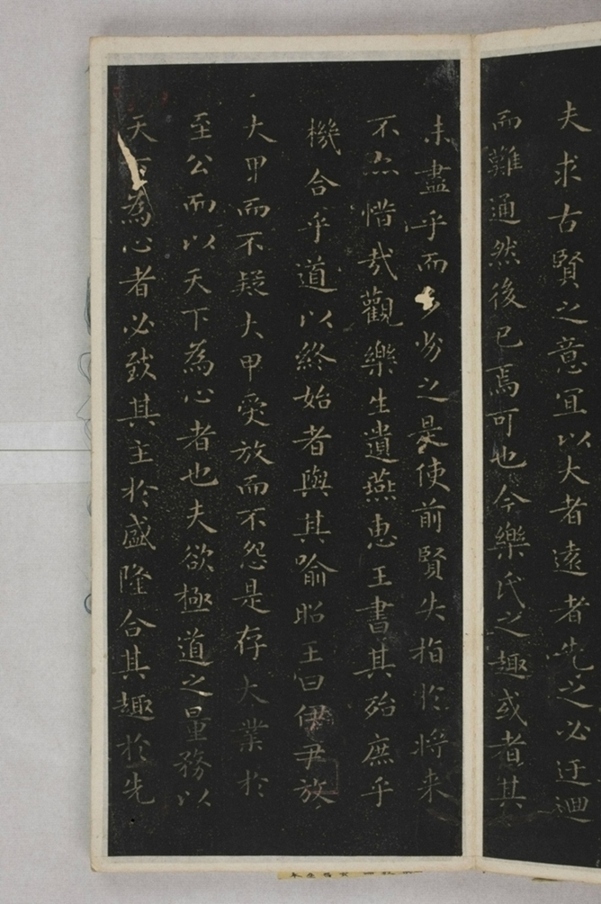 夫求古賢之意宜以大者遠者先之必迂迴
而難通然後已焉可也今樂氏之趣或者其
未盡乎而多劣之是使前賢失指於將来
不亦惜哉觀樂生遺燕惠王書其殆庶乎
機合乎道以終始者與其喻昭王曰伊尹放
大甲而不疑大甲受放而不怨是存大業於
至公而以天下為心者也夫欲極道之量務以
天下為心者必致其主於盛隆合其趣於先